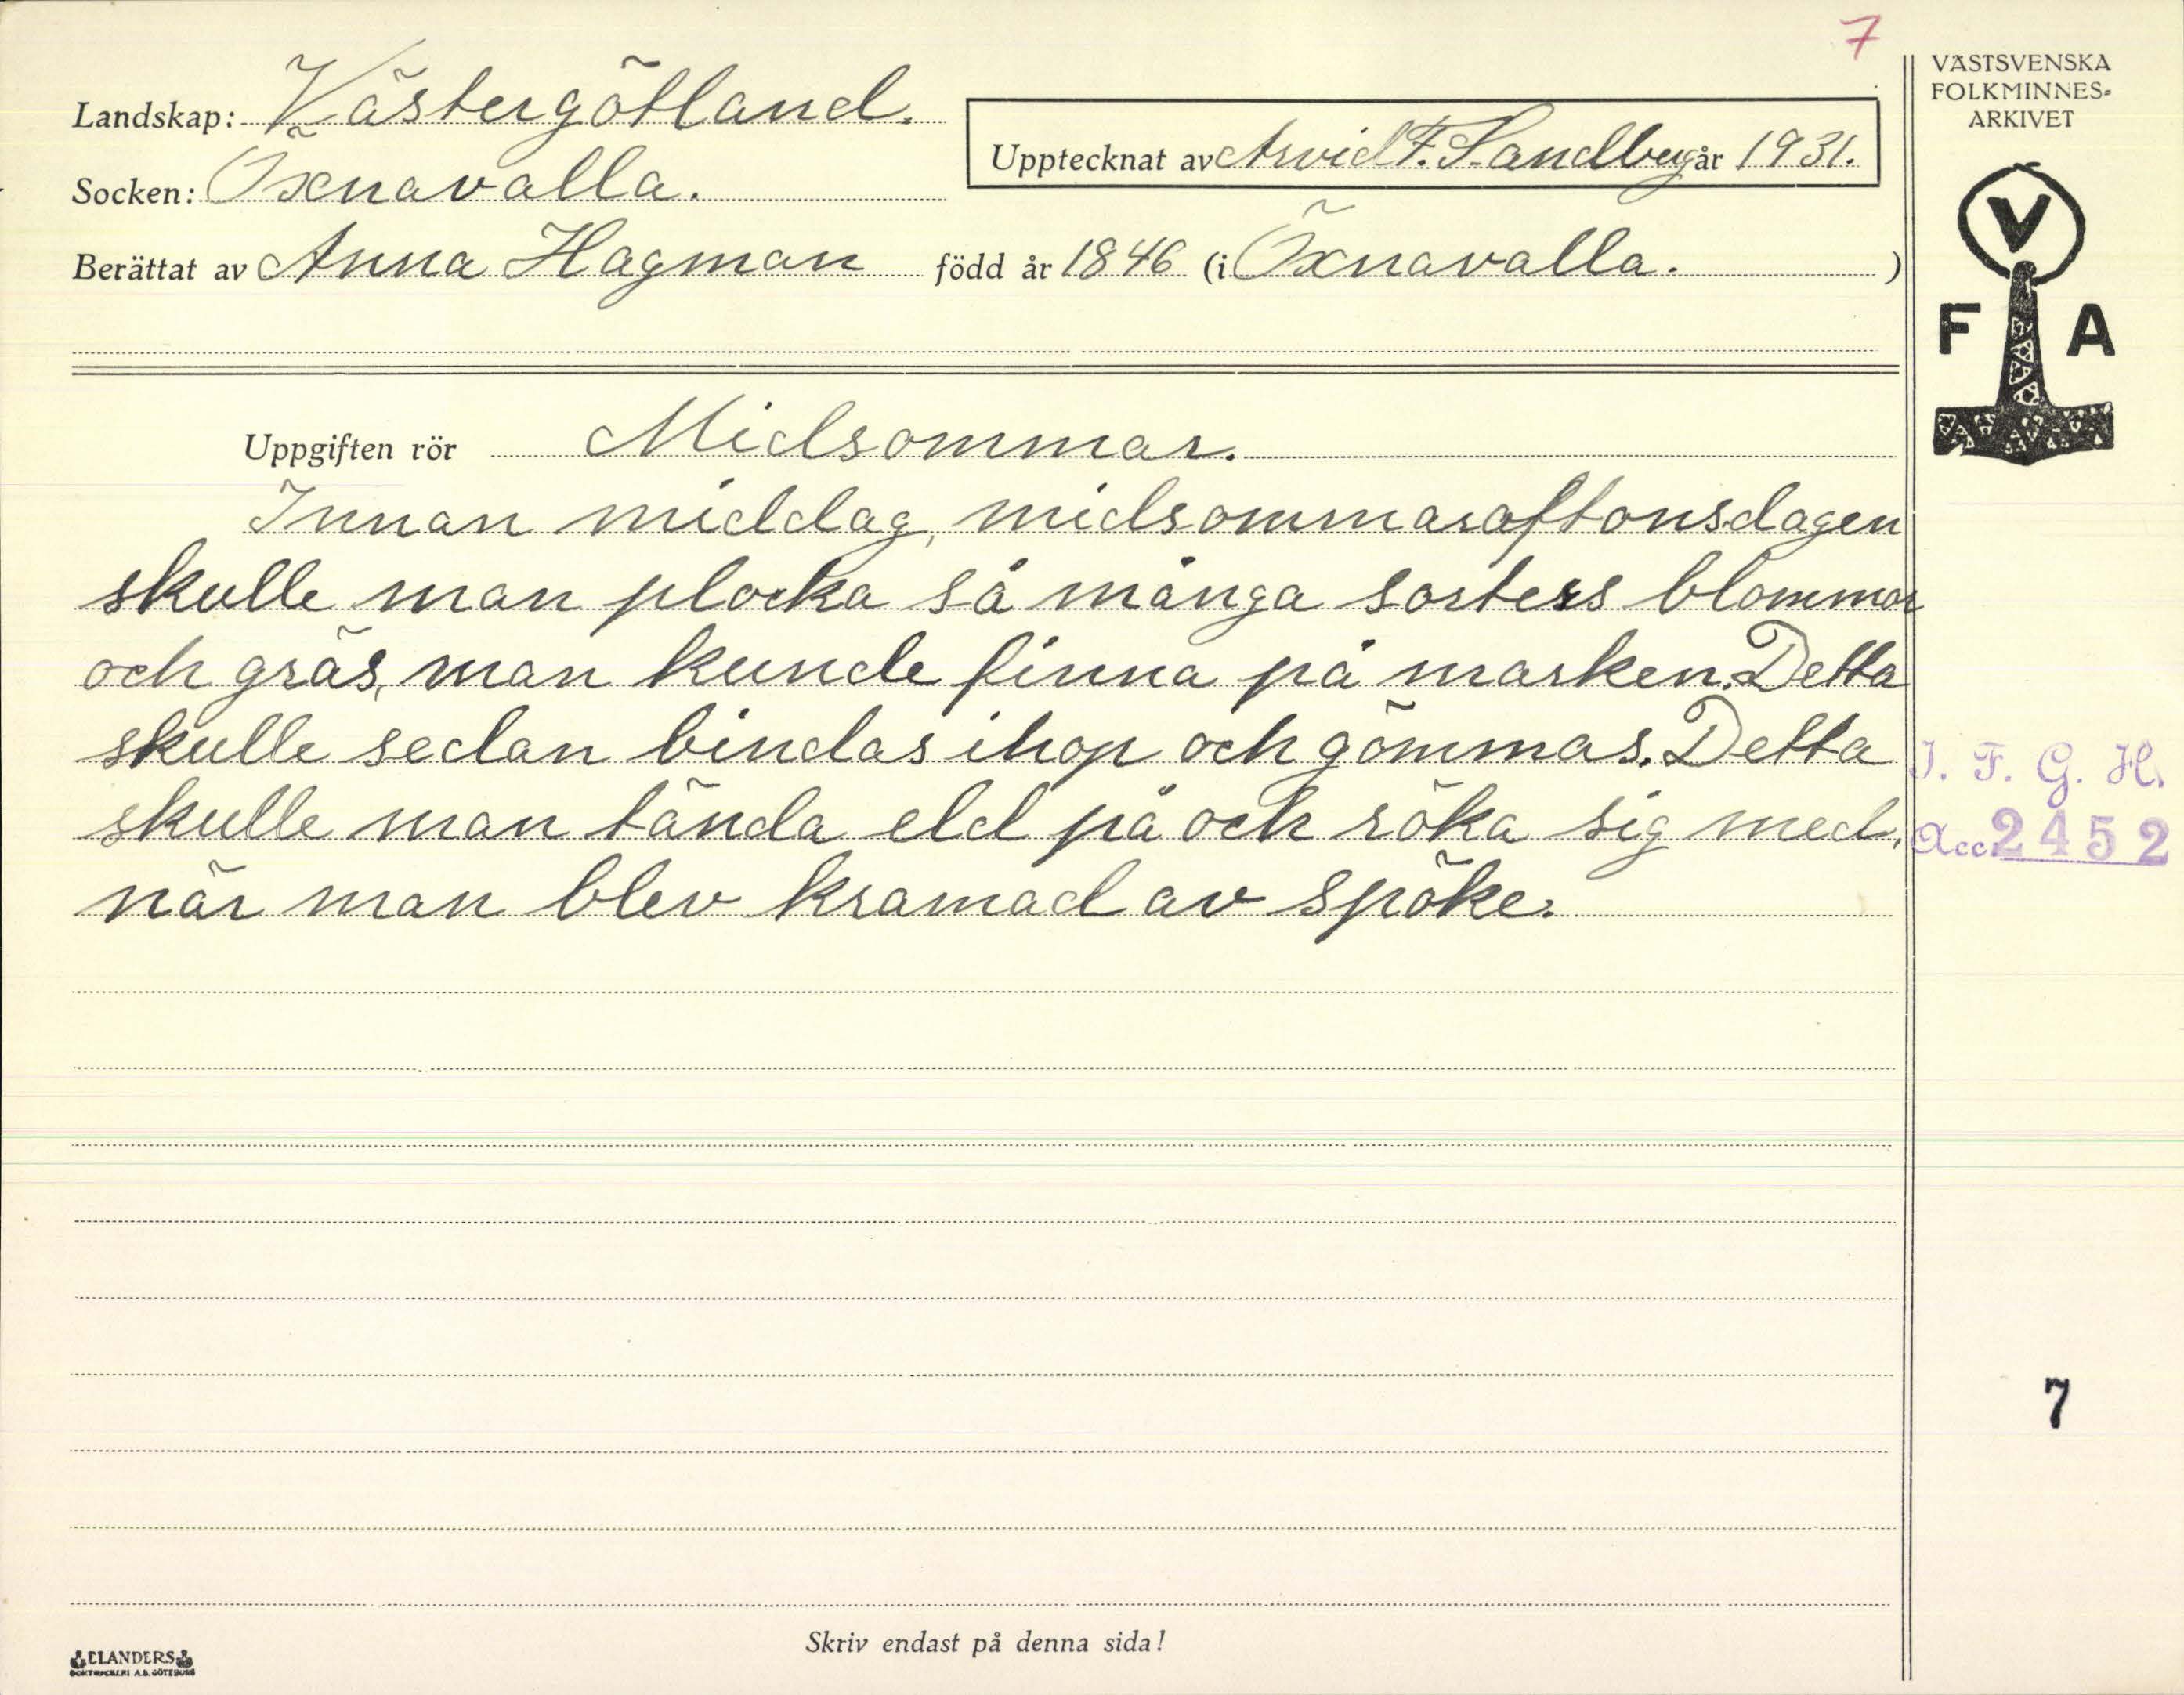 7
VÄSTSVENSKA
FOLKMINNES-
ARKIVET
Landskap: Västergötland.
Upptecknat av Arvid F. Sandberg år 1931.
Socken: Öxnavalla.
Berättat av Anna Hagman född år 1846 (i Öxnavalla. )
V
F A
Uppgiften rör Midsommar.
Innan middag, midsommaraftonsdagen
skulle man plocka så många sorters blommor
och gräs, man kunde finna på marken. Detta
skulle sedan bindas ihop och gömmas. Detta
skulle man tända eld på och röka sig med,
när man blev kramad av spöke.
I. F. G. H.
Acc. 2452
7
Skriv endast på denna sida!
ELANDERS
BOKTRYCKERI A.B. GÖTEBORG